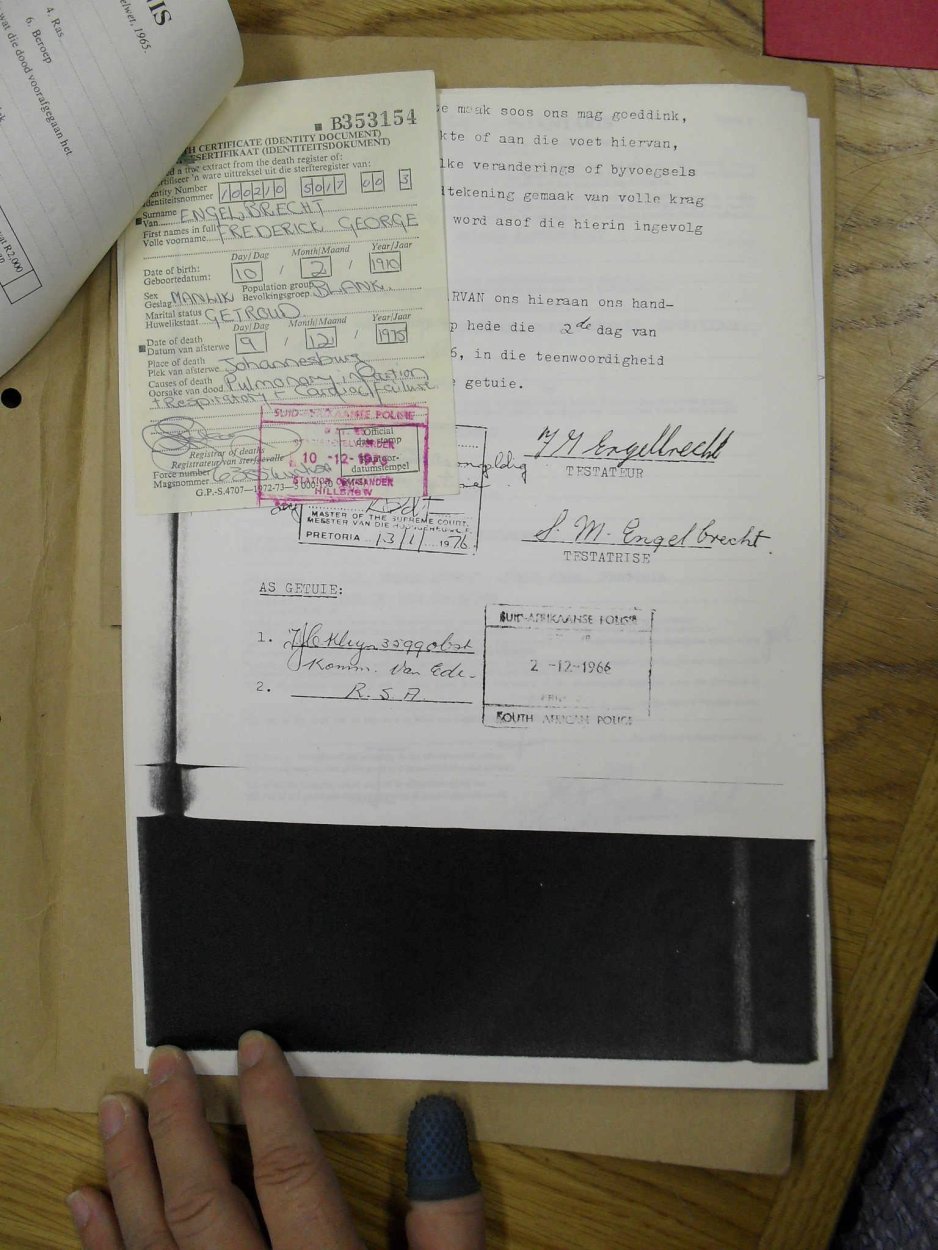 NIS
elwet, 1965.
4. Ras
6. Beroep
wat die dood voorafgegaan het
wat R2,000
B353154
TH CERTIFICATE (IDENTITY DOCUMENT)
SERTIFIKAAT (IDENTITEITSDOKUMENT)
a true extract from the death register of:
'n ware uittreksel uit die sterfteregister van:
Identity Number
Identiteitsnommer 100210 5017 00 3
Surname
Van ENGELBRECHT
First names in full
Volle voorname FREDERICK GEORGE
Day/Dag Month/Maand Year/Jaar
Date of birth:
Geboortedatum: 10 / 2 / 1910
Sex
Geslag MANLIK Population group
Bevolkingsgroep BLANK.
Marital status
Huwelikstaat GETROUD
Day/Dag Month/Maand Year/Jaar
Date of death
Datum van afsterwe 9 / 12 / 1975
Place of death
Plek van afsterwe Johannesburg
Causes of death
Oorsake van dood Pulmonary infarction
+ Respiratory + Cardiac failure
SUID-AFRIKAANSE POLISIE
Official
date stamp
10 -12- 1975
datumstempel
STATION COMMANDER
HILLBROW
Registrar of deaths
Registrateur van sterfgevalle
Force number
Magsnommer
G.P.-S.4707—1972-73—
e maak soos ons mag goeddink,
kte of aan die voet hiervan,
lke veranderings of byvoegsels
dtekening gemaak van volle krag
word asof die hierin ingevolg
RVAN ons hieraan ons hand-
p hede die 2de dag van
6, in die teenwoordigheid
e getuie.
MASTER OF THE SUPREME COURT,
MEESTER VAN DIE HOOGGEREGSHOF,
PRETORIA 13/1/1976
Engelbrecht
TESTATEUR
S. M. Engelbrecht.
TESTATRISE
AS GETUIE:
1. Kleyn 3599 obst
Komm. van Ede.
2. R.S.A.
SUID-AFRIKAANSE POLISIE
2 -12-1966
SOUTH AFRICAN POLICE